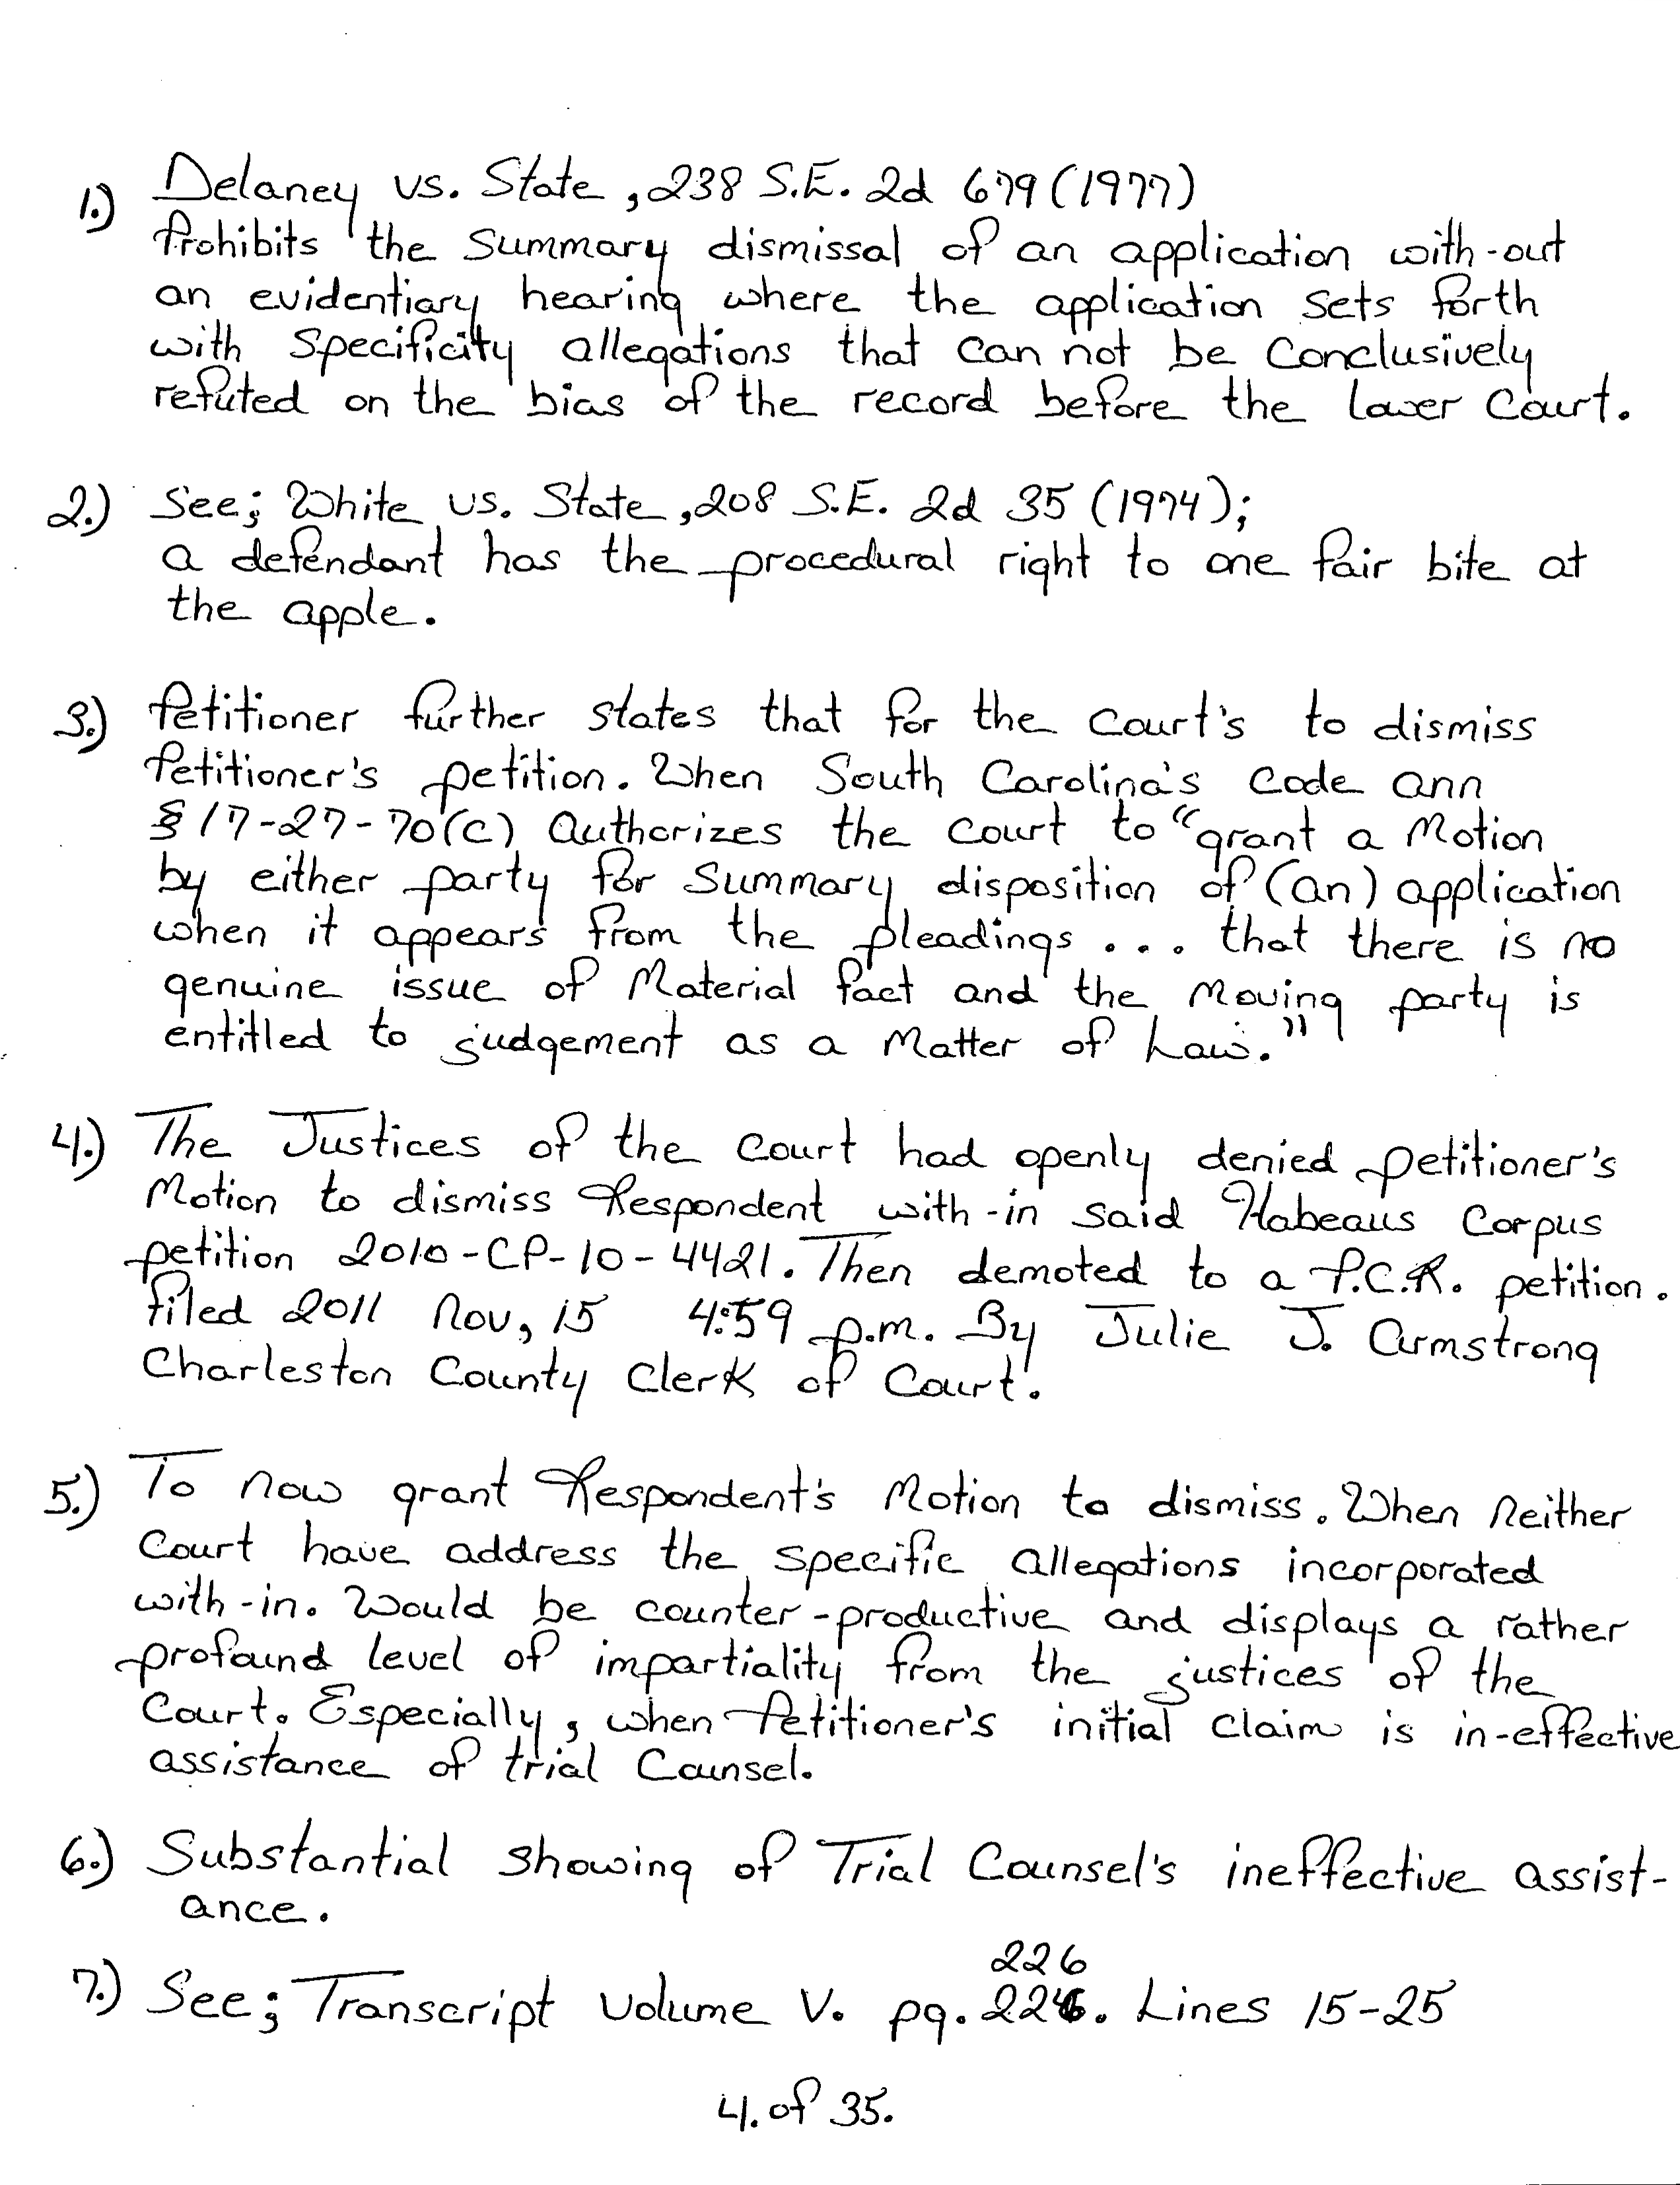 1.) Delaney vs. State, 238 S.E. 2d 679 (1977)
Prohibits the Summary dismissal of an application with-out
an evidentiary hearing where the application Sets forth
with Specificity allegations that can not be Conclusively
refuted on the bias of the record before the Lower Court.
2.) See; White vs. State, 208 S.E. 2d 35 (1974);
a defendant has the procedural right to one fair bite at
the apple.
3.) Petitioner further states that for the Court's to dismiss
Petitioner's petition. When South Carolina's Code ann
§ 17-27-70(c) Authorizes the Court to "grant a Motion
by either party for Summary disposition of (an) application
when it appears from the pleadings . . . that there is no
genuine issue of Material fact and the Moving party is
entitled to judgement as a Matter of Law."
4.) The Justices of the Court had openly denied petitioner's
Motion to dismiss Respondent with-in said Habeaus Corpus
petition 2010-CP-10-4421. Then demoted to a P.C.R. petition.
Filed 2011 Nov, 15 4:59 p.m. By Julie J. Armstrong
Charleston County Clerk of Court.
5.) To now grant Respondent's Motion to dismiss. When Neither
Court have address the specific allegations incorporated
with-in. Would be counter-productive and displays a rather
profound level of impartiality from the justices of the
Court. Especially, when Petitioner's initial claim is in-effective
assistance of trial Counsel.
6.) Substantial showing of Trial Counsel's ineffective assist-
ance.
226
7.) See; Transcript Volume V. pg. 226. Lines 15-25
4. of 35.